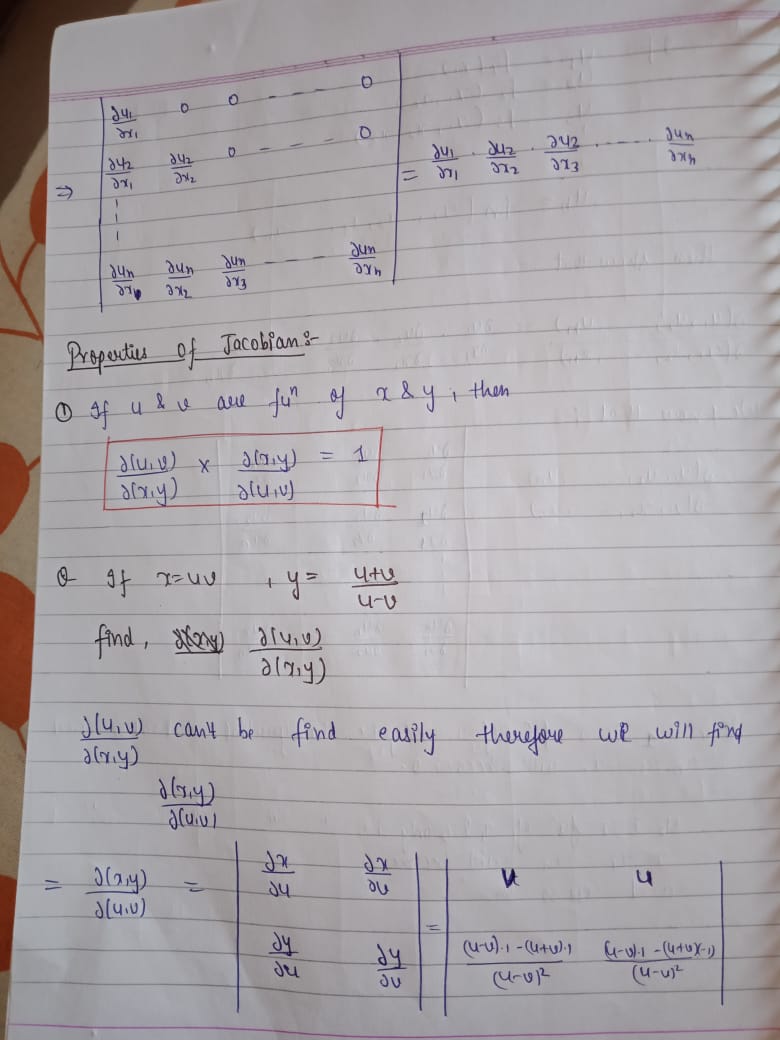 ⇒ | ∂u₁/∂x₁ 0 0 - - - - 0 |
| ∂u₂/∂x₁ ∂u₂/∂x₂ 0 - - - - 0 | = ∂u₁/∂x₁ · ∂u₂/∂x₂ · ∂u₂/∂x₃ · - - - - ∂un/∂xn
| ∂un/∂x₁ ∂un/∂x₂ ∂un/∂x₃ - - - - ∂un/∂xn |
Properties of Jacobian :-
① If u & v are fuⁿ of x & y, then
∂(u,v)/∂(x,y) × ∂(x,y)/∂(u,v) = 1
Q If x=uv , y= (u+v)/(u-v)
find, ∂(u,v)/∂(x,y)
∂(u,v)/∂(x,y) can't be find easily therefore we will find
∂(x,y)/∂(u,v)
= ∂(x,y)/∂(u,v) = | ∂x/∂u ∂x/∂v | = | v u |
| ∂y/∂u ∂y/∂v | | ((u-v).1-(u+v).1)/(u-v)² ((u-v).1-(u+v)(-1))/(u-v)² |